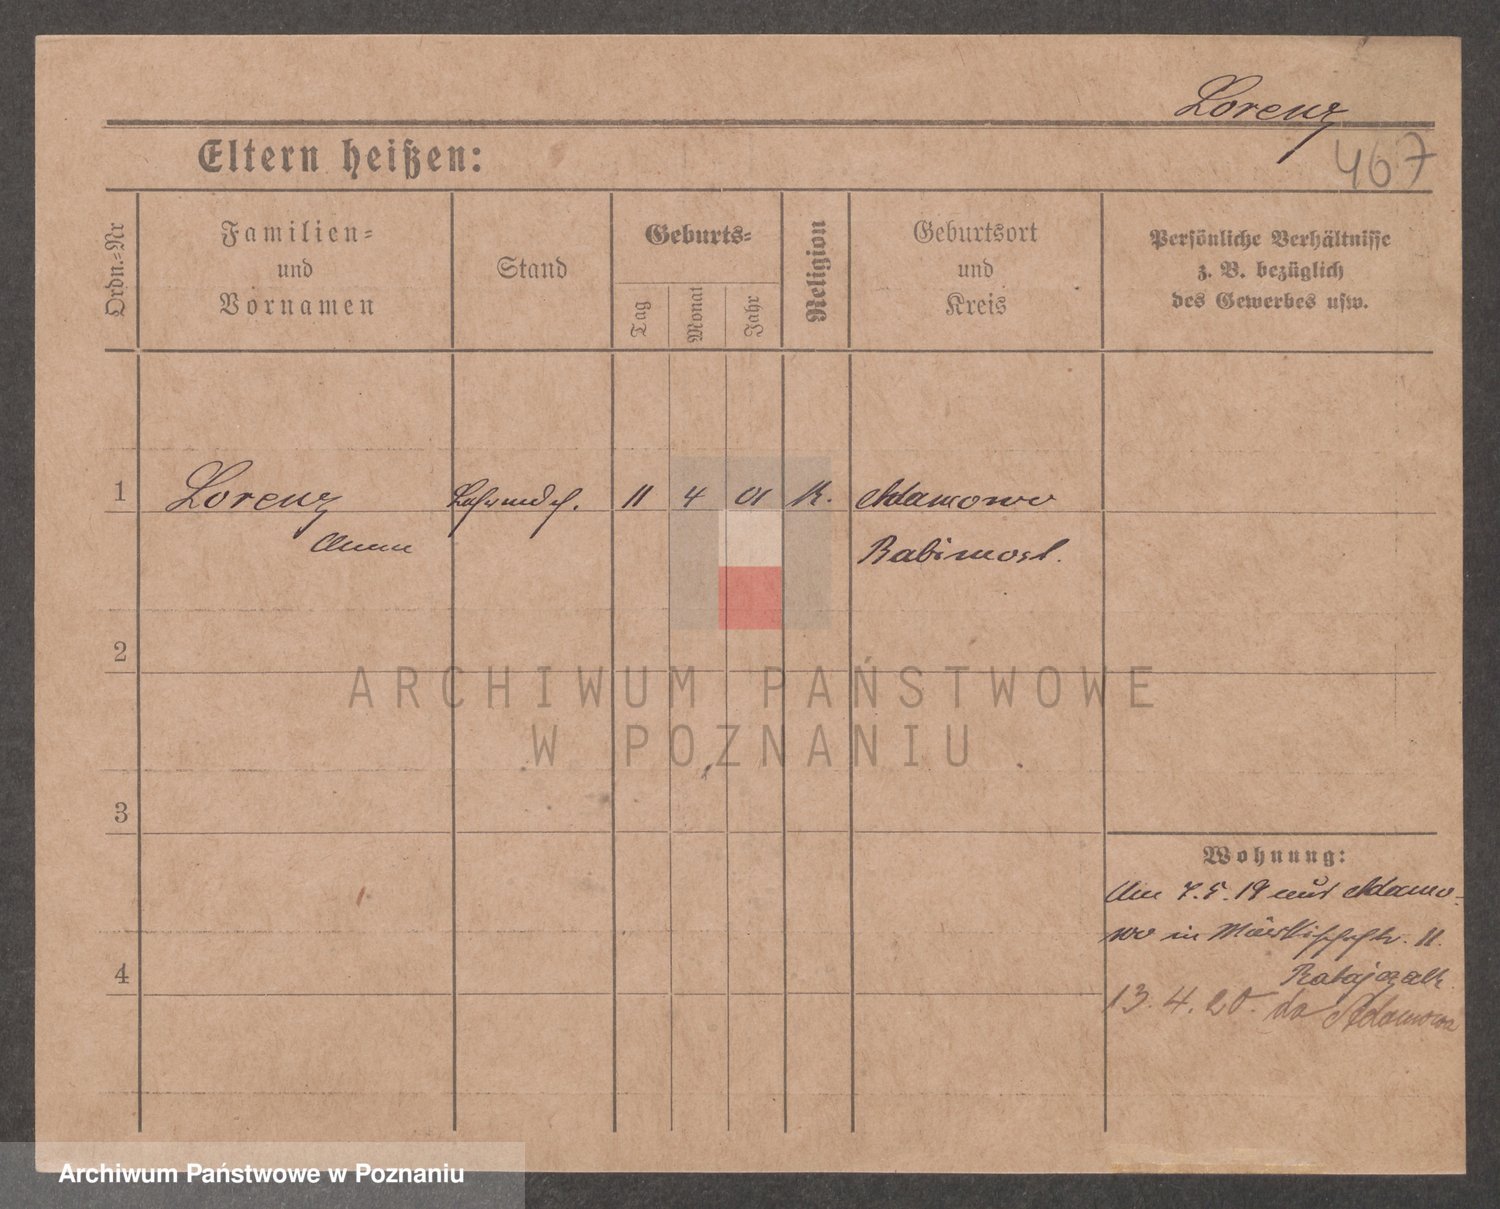 Lorenz
467
Eltern heißen:
Ordn.-Nr
Familien-
und
Vornamen
Stand
Geburts-
Tag
Monat
Jahr
Religion
Geburtsort
und
Kreis
Persönliche Verhältnisse
z. B. bezüglich
des Gewerbes usw.
1 Lorenz 11 4 01 K. Adamowo
Anna Babimost.
2
ARCHIWUM PAŃSTWOWE
W POZNANIU
3
Wohnung:
Am 7.5.19 aus Adamo-
wo in Märkischestr. 11.
Ratajczak
4
13.4.20. do Adamowa
Archiwum Państwowe w Poznaniu